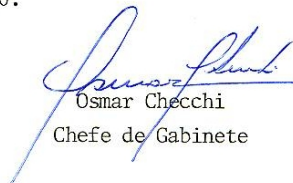 Osmar Checchi
Chefe de Gabinete